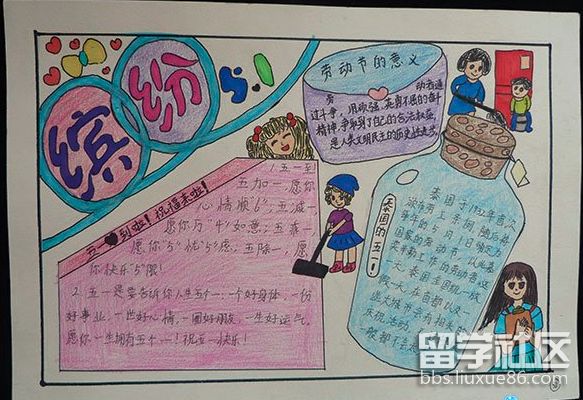 缤纷
5.1
劳动节的意义
劳动者通
过斗争,用顽强、英勇不屈的奋斗
精神,争取到了自己的合法权益,
是人类文明民主的历史性进步。
五一到啦!祝福来啦!
1.五一至
五加一,愿你
心情顺"6";五减一,
愿你万"4"如意;五乘一,
愿你"5"忧"5"虑,五除一,愿
你快乐"5"限!
2.五一是要告诉你人生五个一:一个好身体,一份
好事业,一世好心情,一圈好朋友,一生好运气,
愿你一生拥有五个一!祝五一快乐!
泰国的五一!
泰国于1932年首次
每年的5月1日
国家的劳动节,以此慰
天,泰国
一天,在首都以及一
庆祝活动,
留学社区
bbs.liuxue86.com